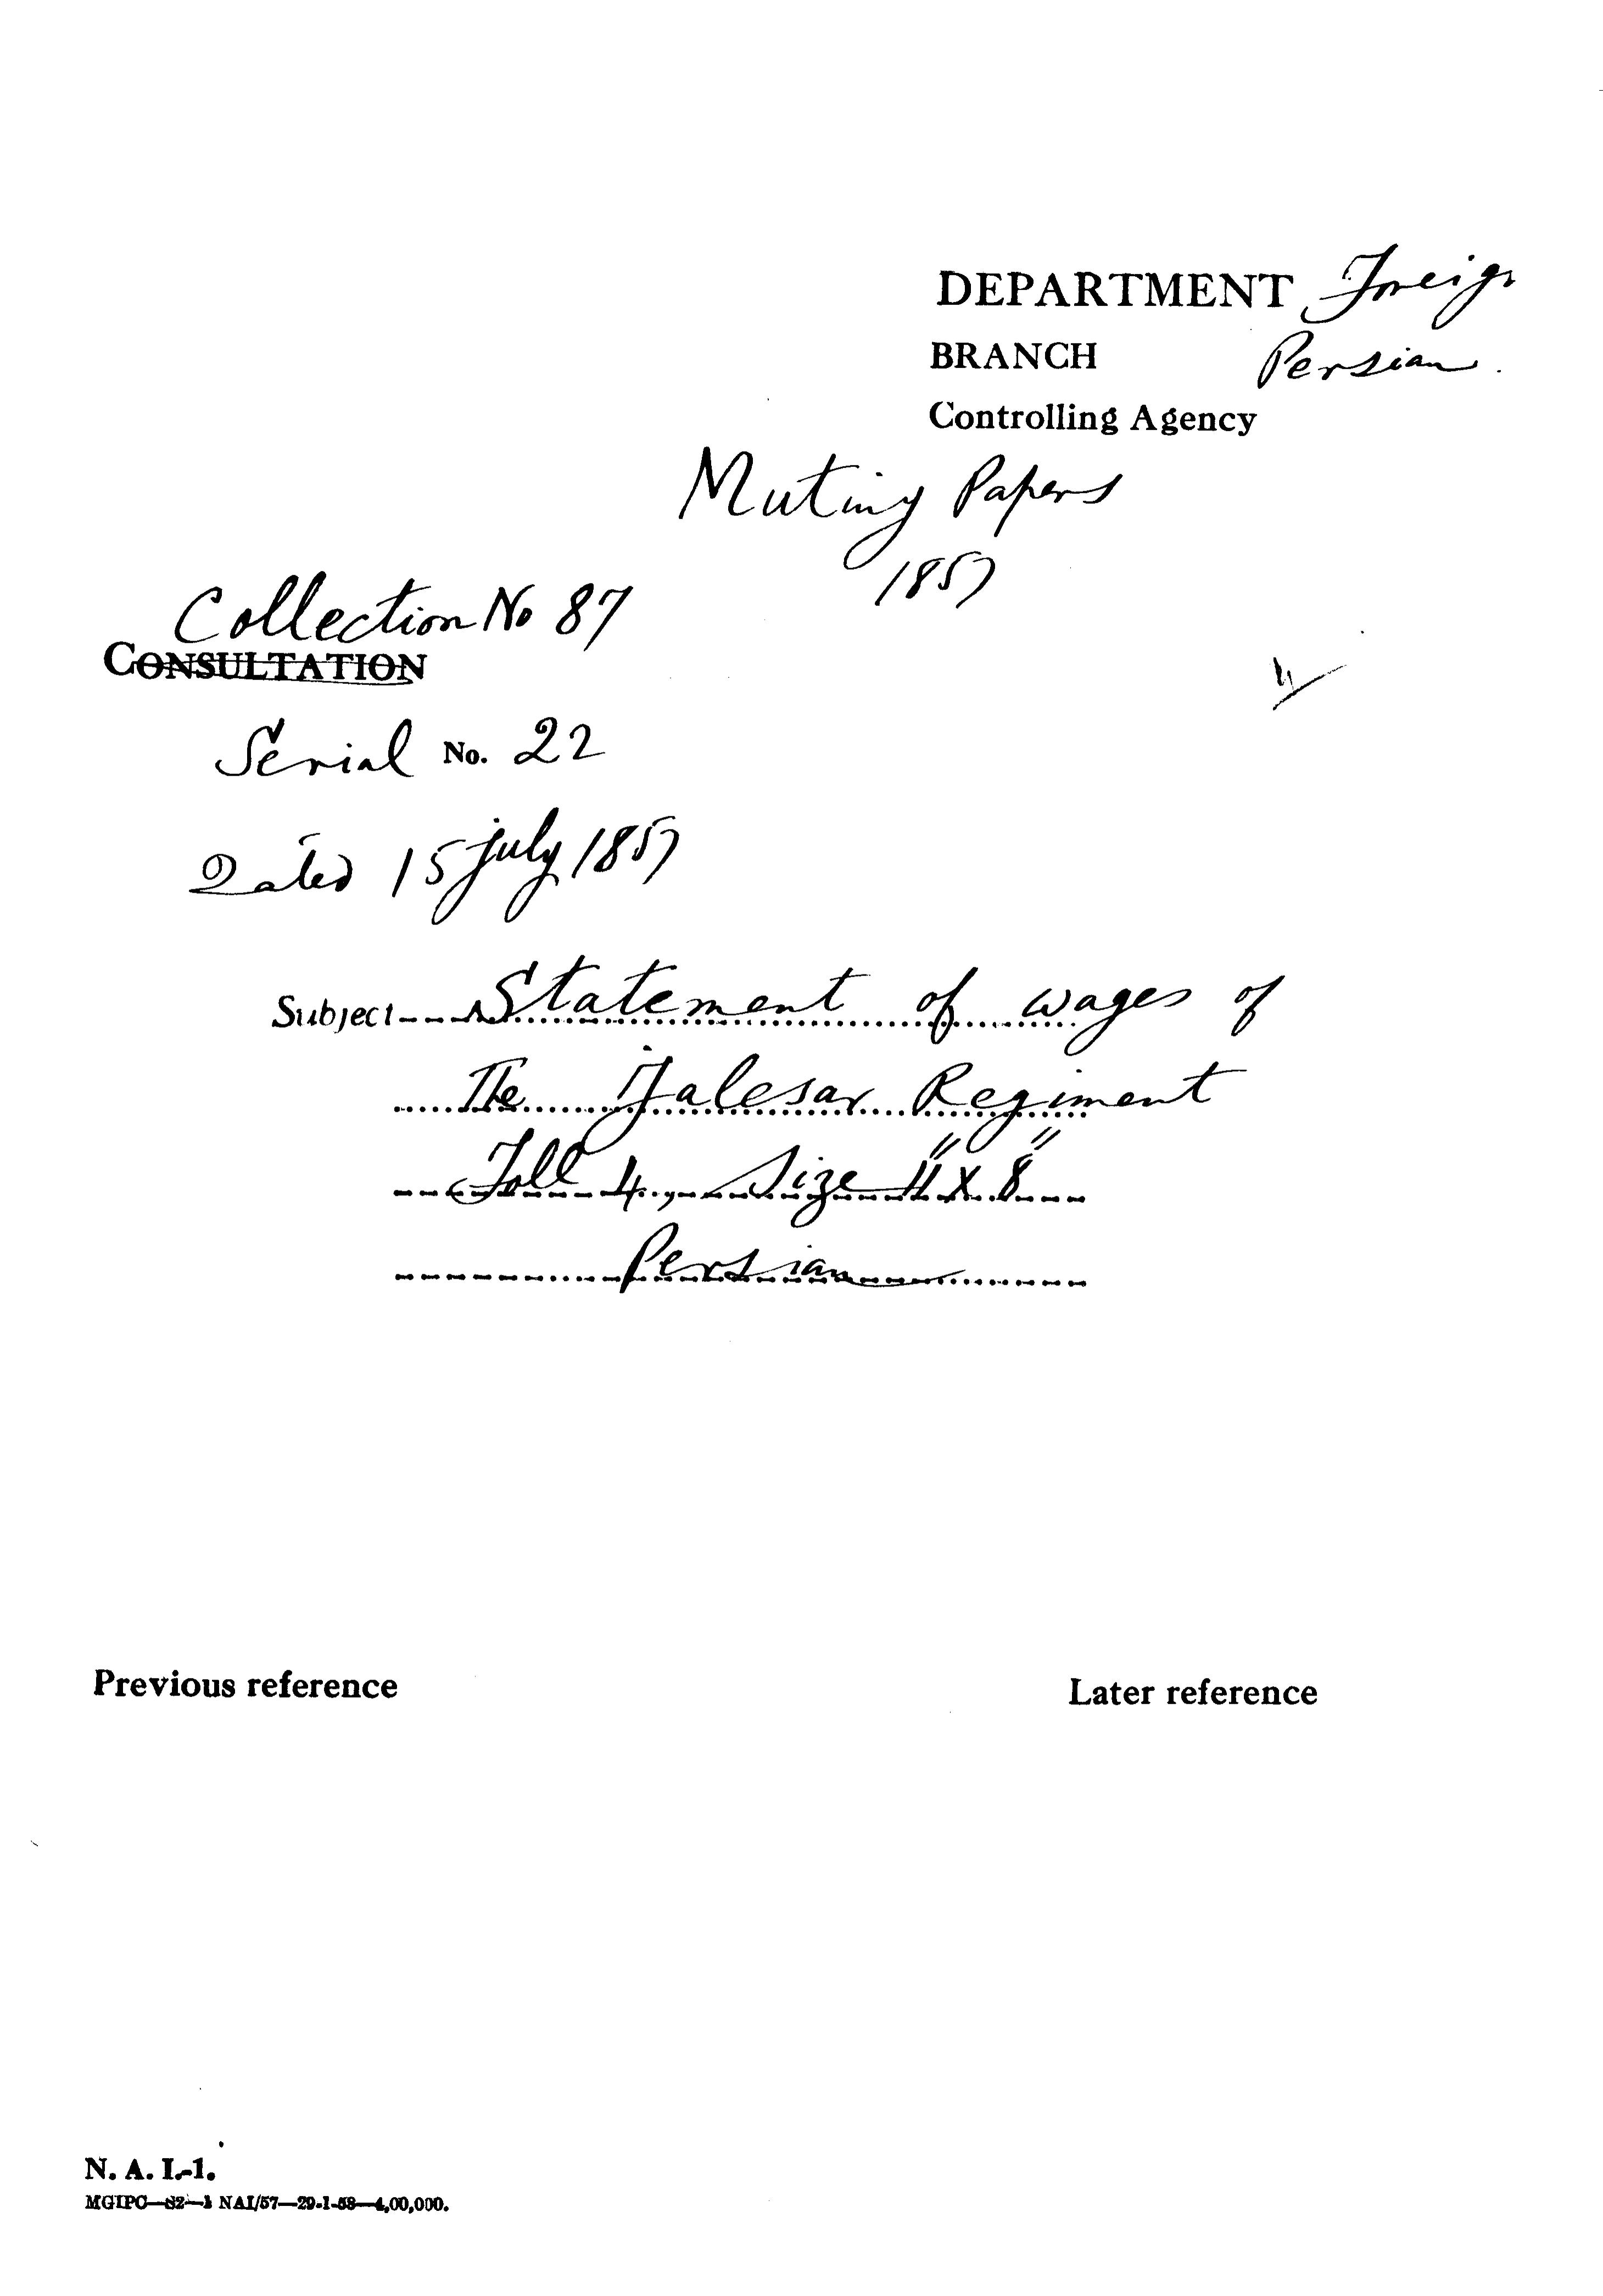 DEPARTMENT Foreign
BRANCH Persian.
Controlling Agency
Mutiny Papers
1857
Collection No 87
CONSULTATION
Serial No. 22
Dated 15 July 1857
Subject Statement of wages of
The Jalesar Regiment
Foll 4, Size 11" x 8"
Persian
Previous reference
Later reference
N. A. I.-1.
MGIPC—S2—1 NAI/57—29-1-58—4,00,000.